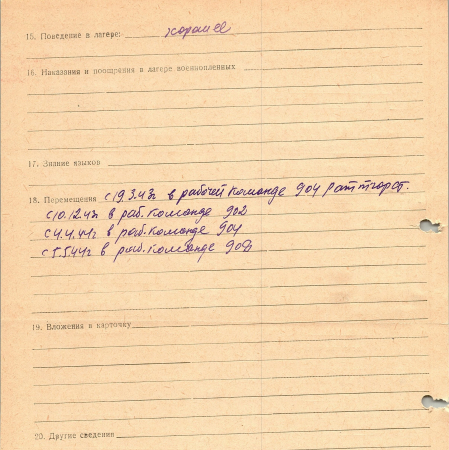 15. Поведение в лагере: хорошее
16. Наказания и поощрения в лагере военнопленных
17. Знание языков
18. Перемещения с 19.3.43г в рабочей команде 904
с 10.12.43г в раб. команде 902
с 4.4.44г в раб. команде 904
с 5.5.44г в раб. команде 908
19. Вложения в карточку
20. Другие сведения